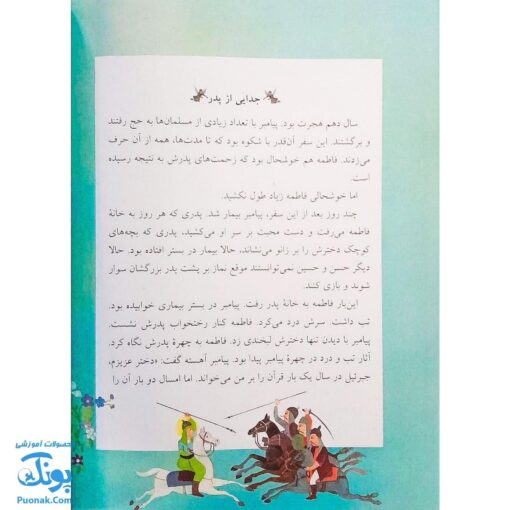 جدایی از پدر
سال دهم هجرت بود. پیامبر با تعداد زیادی از مسلمان‌ها به حج رفتند
و برگشتند. این سفر آن‌قدر با شکوه بود که تا مدت‌ها، همه از آن حرف
می‌زدند. فاطمه هم خوشحال بود که زحمت‌های پدرش به نتیجه رسیده
است.
اما خوشحالی فاطمه زیاد طول نکشید.
چند روز بعد از این سفر، پیامبر بیمار شد. پدری که هر روز به خانهٔ
فاطمه می‌رفت و دست محبت بر سر او می‌کشید، پدری که بچه‌های
کوچک دخترش را بر زانو می‌نشاند، حالا بیمار در بستر افتاده بود. حالا
دیگر حسن و حسین نمی‌توانستند موقع نماز بر پشت پدر بزرگشان سوار
شوند و بازی کنند.
این‌بار فاطمه به خانهٔ پدر رفت. پیامبر در بستر بیماری خوابیده بود.
تب داشت. سرش درد می‌کرد. فاطمه کنار رختخواب پدرش نشست.
پیامبر با دیدن تنها دخترش لبخندی زد. فاطمه به چهرهٔ پدرش نگاه کرد.
آثار تب و درد در چهرهٔ پیامبر پیدا بود. پیامبر آهسته گفت: «دختر عزیزم،
جبرئیل در سال یک بار قرآن را بر من می‌خواند. اما امسال دو بار آن را
محصولات آموزشی
پونک
Puonak.Com